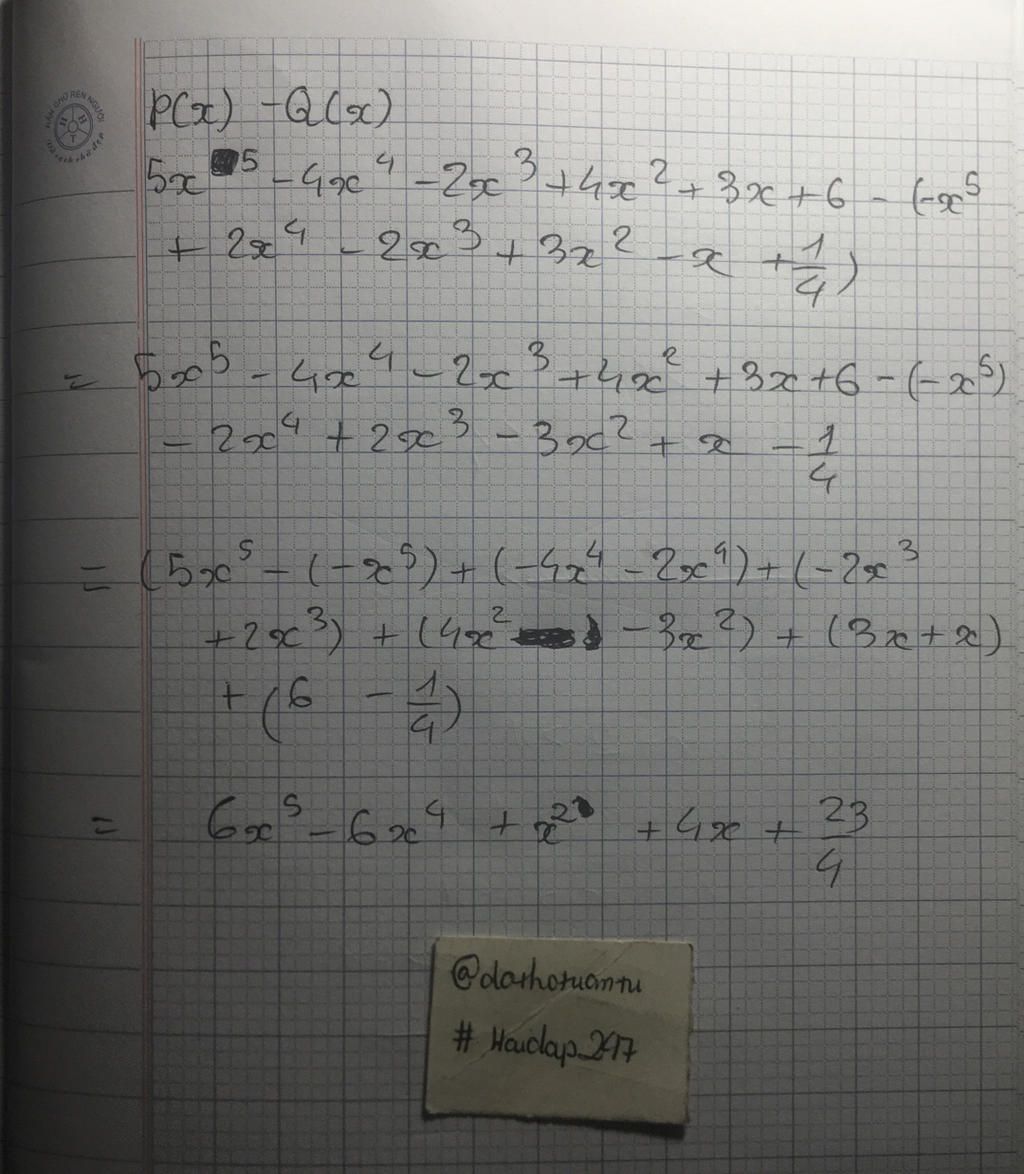 P(x) - Q(x)
5x⁵ - 4x⁴ - 2x³ + 4x² + 3x + 6 - (-x⁵
+ 2x⁴ - 2x³ + 3x² - x + 1/4)
= 5x⁵ - 4x⁴ - 2x³ + 4x² + 3x + 6 - (-x⁵)
- 2x⁴ + 2x³ - 3x² + x - 1/4
= (5x⁵ - (-x⁵) + (-4x⁴ - 2x⁴) + (-2x³
+ 2x³) + (4x² - 3x²) + (3x + x)
+ (6 - 1/4)
= 6x⁵ - 6x⁴ + x² + 4x + 23/4